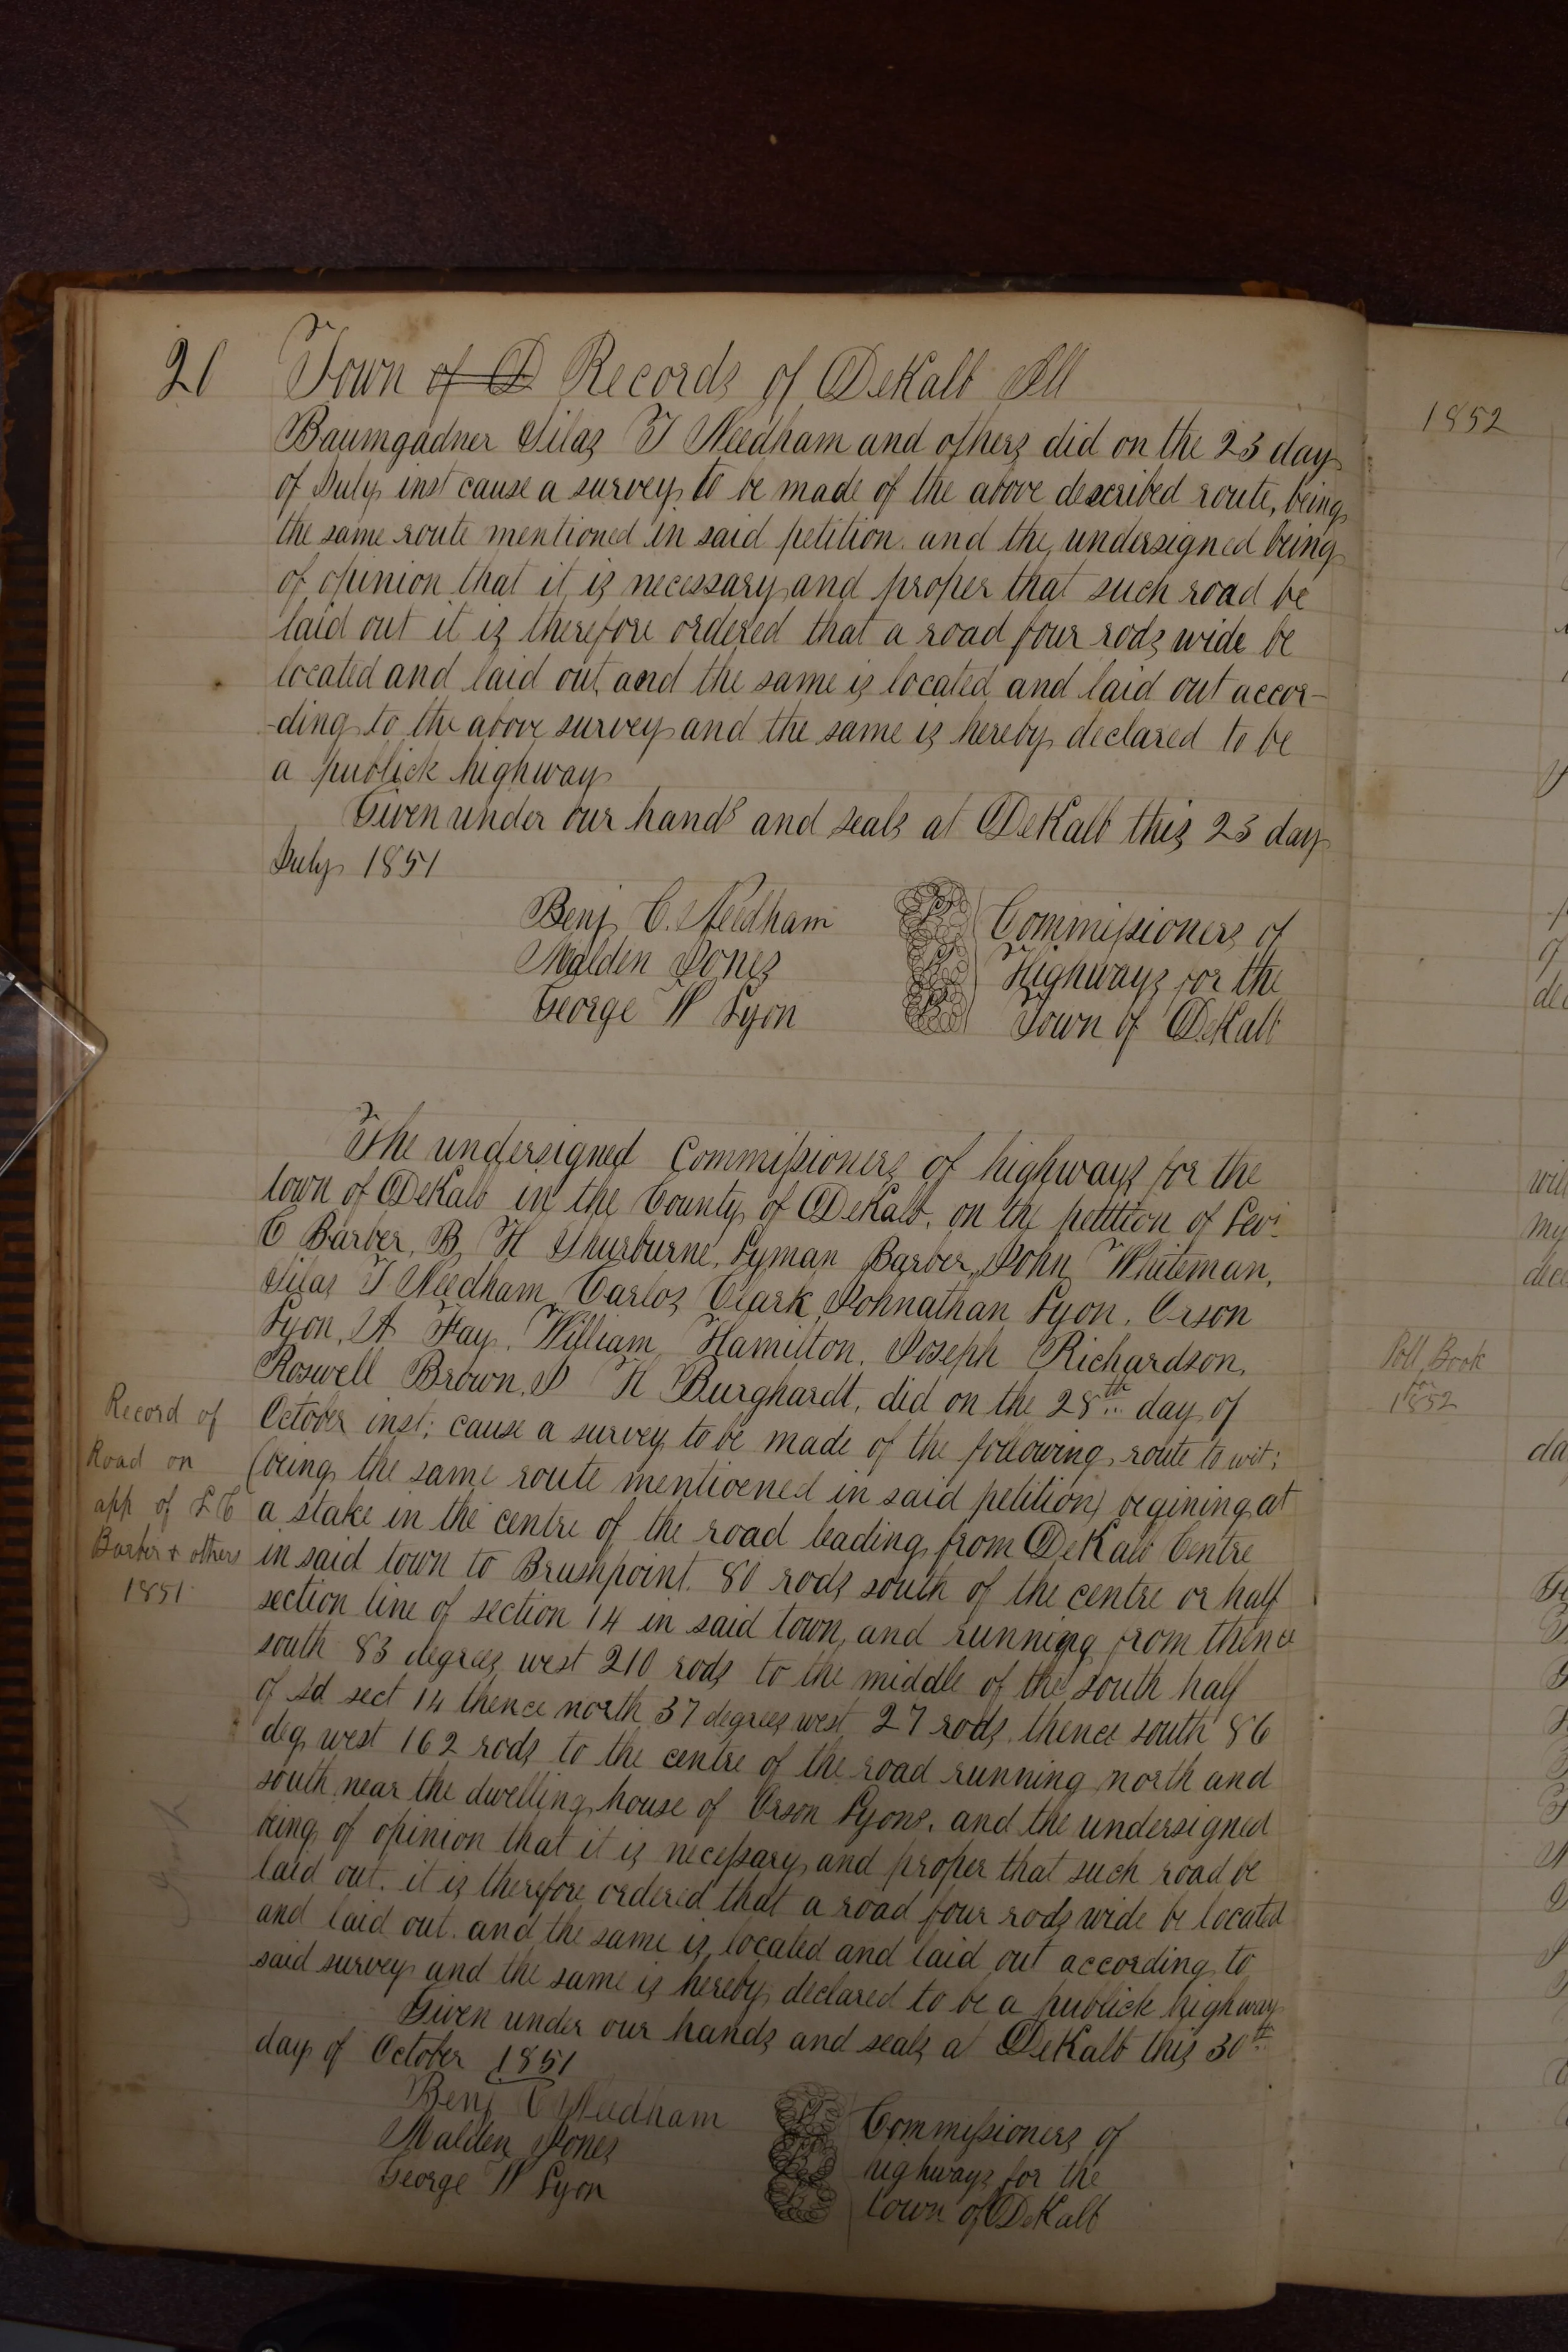 20 Town of D Records of DeKalb Ill
Baumgadner Silas T Needham and others did on the 23 day
of July inst cause a survey to be made of the above described route, being
the same route mentioned in said petition. and the undersigned being
of opinion that it is necessary and proper that such road be
laid out it is therefore ordered that a road four rods wide be
located and laid out, and the same is located and laid out accor-
-ding to the above survey and the same is hereby declared to be
a publick highway
Given under our hands and seals at DeKalb this 23 day
July 1851
Benj C. Needham Commissioners of
Malden Jones Highways for the
George W Lyon Town of DeKalb
The undersigned Commissioners of highways for the
town of DeKalb in the County of DeKalb, on the petition of Levi
C Barber, B H Thurburne, Lyman Barber, John Whiteman,
Silas T Needham Carlos Clark, Johnathan Lyon, Orson
Lyon, A Fay, William Hamilton, Joseph Richardson,
Roswell Brown, H Burghardt, did on the 28th day of
October inst; cause a survey to be made of the following route to wit;
(being the same route mentioened in said petition) begining at
a stake in the centre of the road leading from DeKalb Centre
in said town to Brushpoint. 80 rods south of the centre or half
section line of section 14 in said town, and running from thence
south 83 degrees west 210 rods to the middle of the south half
of sd sect 14 thence north 37 degrees west 27 rods, thence south 86
deg west 162 rods to the centre of the road running north and
south near the dwelling house of Orson Lyons. and the undersigned
being of opinion that it is necessary and proper that such road be
laid out. it is therefore ordered that a road four rods wide be located
and laid out. and the same is located and laid out according to
said survey and the same is hereby declared to be a publick highway
Given under our hands and seals at DeKalb this 30th
day of October 1851
Benj C Needham Commissioners of
Malden Jones highways for the
George W Lyon town of DeKalb
Record of
Road on
app of L C
Barber & others
1851
1852
Poll Book
for
1852